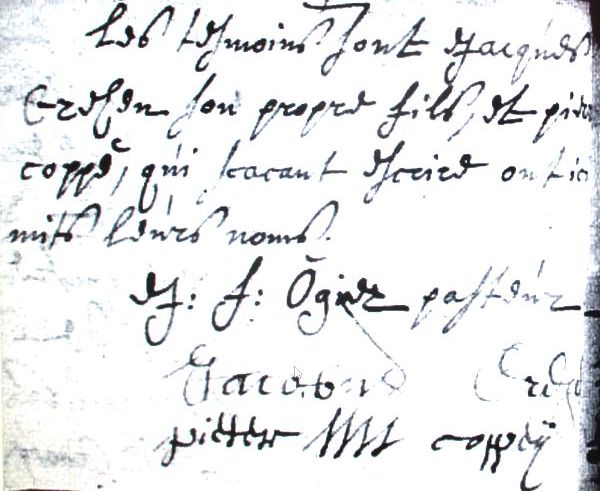 Les tesmoins sont Jacques
Cresen son propre fils, et pier
coppé, qui scacant escrire ont ici
mits leurs noms.
J: f: Ogier pasteur
Jacobus Cres
pieter coppeÿ